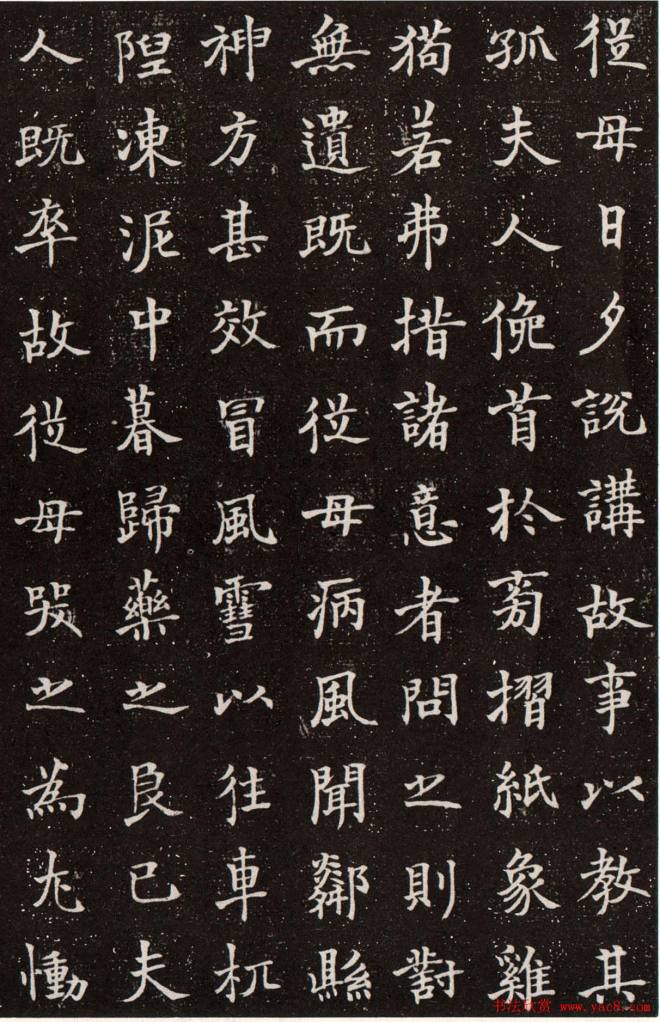 從母日夕說講故事以教其
孤夫人俛首於旁摺紙象雞
猫若弗措諸意者問之則對
無遺既而從母病風聞鄰縣
神方甚效冒風雪以往車杌
隉凍泥中暮歸藥之良已夫
人既卒故從母哭之為尤慟
书法欣赏 www.yac8.com